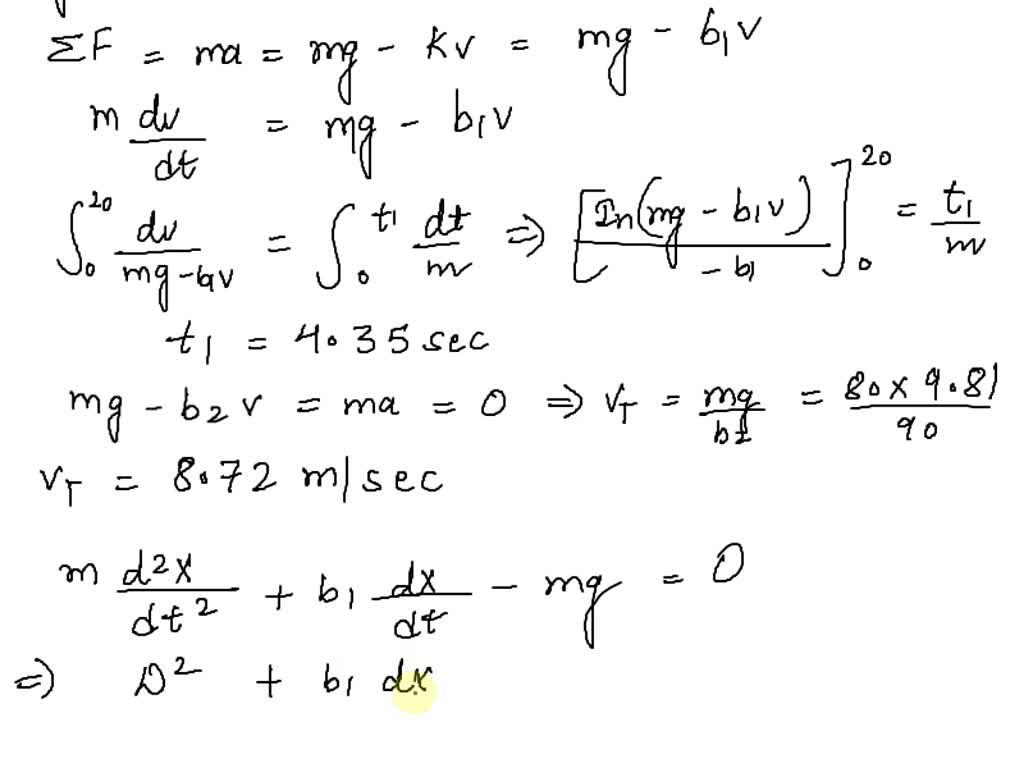 ΣF = ma = mg - kv = mg - b₁v
m dv/dt = mg - b₁v
∫₀²⁰ dv/(mg-b₁v) = ∫₀^t₁ dt/m ⇒ [In(mg - b₁v)/-b₁]₀²⁰ = t₁/m
t₁ = 4.35 sec
mg - b₂v = ma = 0 ⇒ v_T = mg/b₂ = 80x9.81/90
v_T = 8.72 m/sec
m d²x/dt² + b₁ dx/dt - mg = 0
⇒ D² + b₁ dx